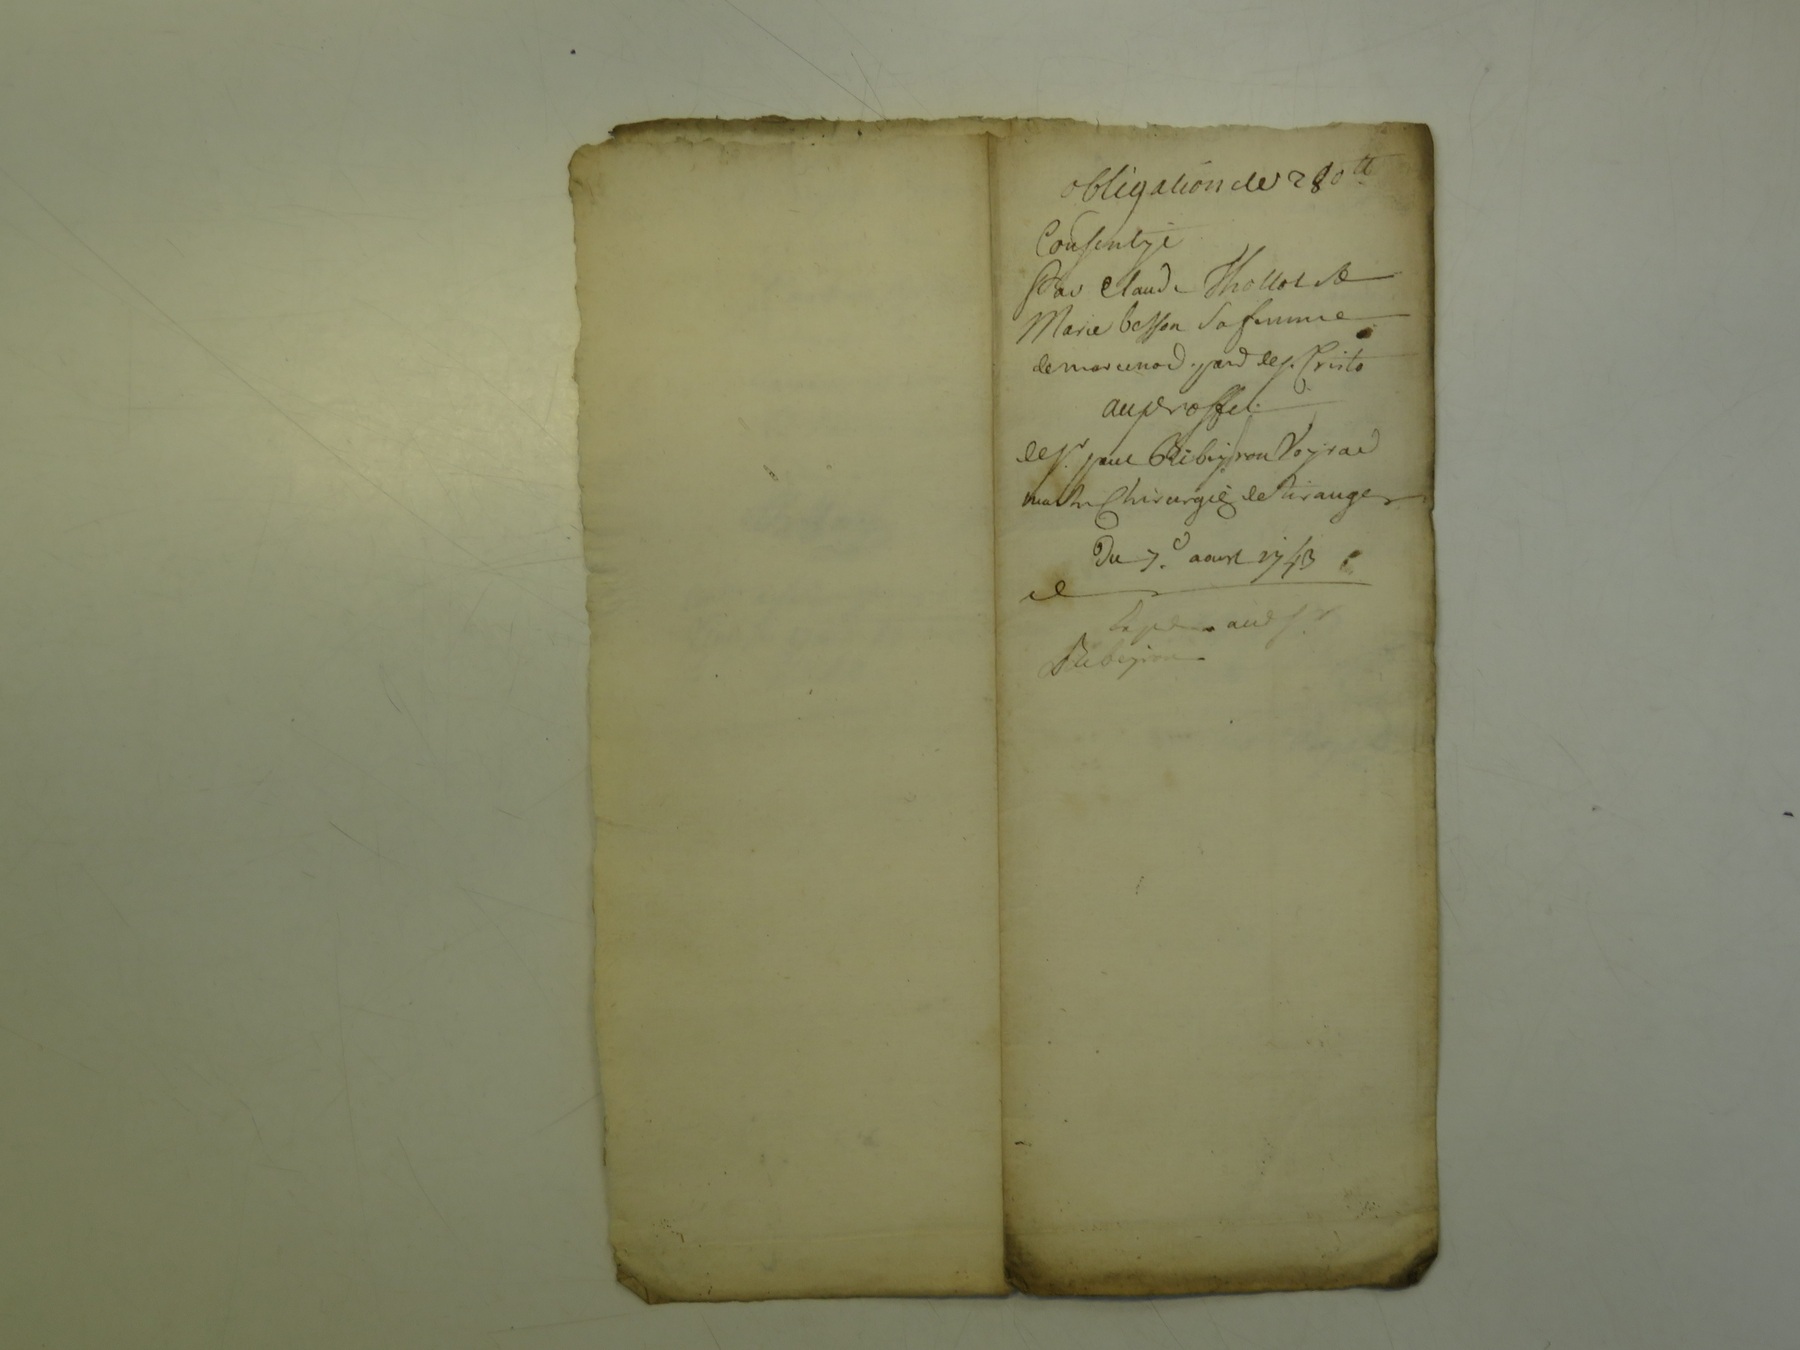 obligation de 280tt
Consentye
Par Claude Thollot &
Marie besson sa femme
de marcenod parr de st Cristo
au proffet
de sr paul Ribeyron Voyrad
maitre Chirurgien de
Du 7e aoust 1743
aud sr
Ribeyron